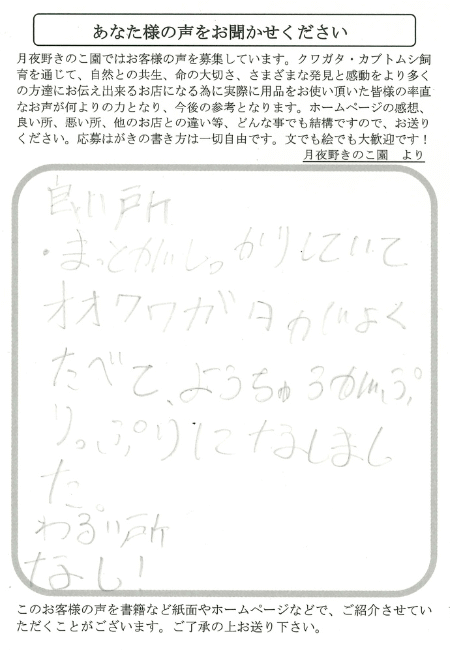 あなた様の声をお聞かせください
月夜野きのこ園ではお客様の声を募集しています。クワガタ・カブトムシ飼
育を通じて、自然との共生、命の大切さ、さまざまな発見と感動をより多く
の方達にお伝え出来るお店になる為に実際に用品をお使い頂いた皆様の率直
なお声が何よりの力となり、今後の参考となります。ホームページの感想、
良い所、悪い所、他のお店との違い等、どんな事でも結構ですので、お送り
ください。応募はがきの書き方は一切自由です。文でも絵でも大歓迎です！
月夜野きのこ園　より
良い所
・まっとがしっかりしていて
オオクワガタがよく
たべて、ようちゅうがぷ
りっぷりになりまし
た。
わるい所
なし！
このお客様の声を書籍など紙面やホームページなどで、ご紹介させてい
ただくことがございます。ご了承の上お送り下さい。